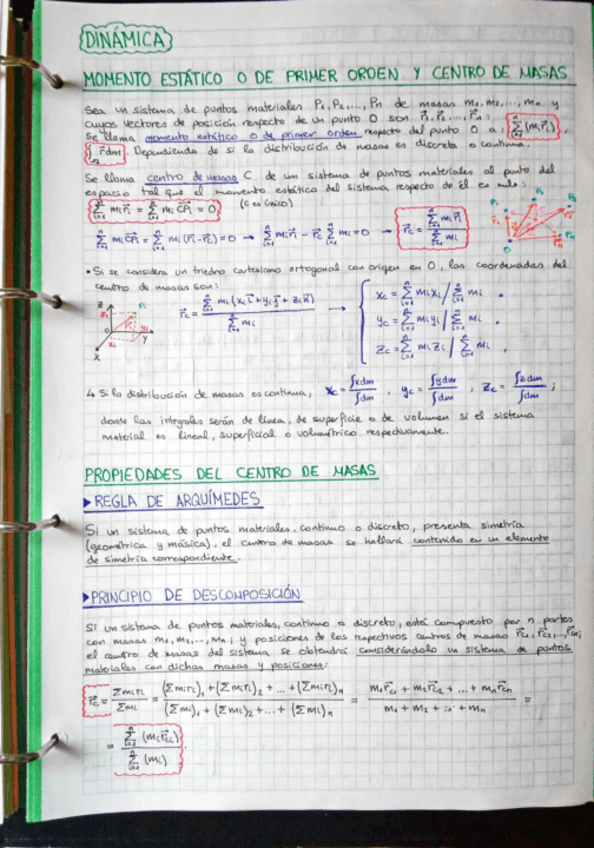 DINÁMICA
MOMENTO ESTÁTICO O DE PRIMER ORDEN Y CENTRO DE MASAS
Sea un sistema de puntos materiales P₁, P₂, ..., Pn de masas m₁, m₂, ..., mn y
cuyos vectores de posición respecto de un punto O son r⃗₁, r⃗₂, ..., r⃗n:
Se llama momento estático o de primer orden respecto del punto O a: Σⁿᵢ₌₁ (mᵢ r⃗ᵢ),
∫ r⃗ dm. Dependiendo de si la distribución de masas es discreta o continua.
Se llama centro de masas C de un sistema de puntos materiales al punto del
espacio tal que el momento estático del sistema respecto de él es nulo:
Σⁿᵢ₌₁ mᵢ r⃗ᵢ = Σⁿᵢ₌₁ mᵢ CP⃗ᵢ = 0 (C es único)
Σⁿᵢ₌₁ mᵢ CP⃗ᵢ = Σⁿᵢ₌₁ mᵢ (r⃗ᵢ - r⃗c) = 0 → Σⁿᵢ₌₁ mᵢ r⃗ᵢ - r⃗c Σⁿᵢ₌₁ mᵢ = 0 → r⃗c = Σⁿᵢ₌₁ mᵢ r⃗ᵢ / Σⁿᵢ₌₁ mᵢ
• Si se considera un triedro cartesiano ortogonal con origen en O, las coordenadas del
centro de masas son:
r⃗c = Σⁿᵢ₌₁ mᵢ (xᵢ i⃗ + yᵢ j⃗ + zᵢ k⃗) / Σⁿᵢ₌₁ mᵢ →
xc = Σⁿᵢ₌₁ mᵢ xᵢ / Σⁿᵢ₌₁ mᵢ .
yc = Σⁿᵢ₌₁ mᵢ yᵢ / Σⁿᵢ₌₁ mᵢ .
zc = Σⁿᵢ₌₁ mᵢ zᵢ / Σⁿᵢ₌₁ mᵢ .
z
zᵢ
Pᵢ
r⃗ᵢ
O
yᵢ
y
xᵢ
x
↳ Si la distribución de masas es continua, xc = ∫xdm / ∫dm , yc = ∫ydm / ∫dm , zc = ∫zdm / ∫dm ;
donde las integrales serán de línea, de superficie o de volumen si el sistema
material es lineal, superficial o volumétrico respectivamente.
PROPIEDADES DEL CENTRO DE MASAS
► REGLA DE ARQUÍMEDES
Si un sistema de puntos materiales, continuo o discreto, presenta simetría
(geométrica y másica), el centro de masas se hallará contenido en un elemento
de simetría correspondiente.
► PRINCIPIO DE DESCOMPOSICIÓN
Si un sistema de puntos materiales, continuo o discreto, está compuesto por n partes
con masas m₁, m₂, ..., mn; y posiciones de los respectivos centros de masas r⃗c₁, r⃗c₂, ..., r⃗cn;
el centro de masas del sistema se obtendrá considerándolo un sistema de puntos
materiales con dichas masas y posiciones:
r⃗c = Σmᵢrᵢ / Σmᵢ = (Σmᵢrᵢ)₁ + (Σmᵢrᵢ)₂ + ... + (Σmᵢrᵢ)n / (Σmᵢ)₁ + (Σmᵢ)₂ + ... + (Σmᵢ)n = m₁r⃗c₁ + m₂r⃗c₂ + ... + mn r⃗cn / m₁ + m₂ + ... + mn =
= Σⁿᵢ₌₁ (mᵢ r⃗cᵢ) / Σⁿᵢ₌₁ (mᵢ)